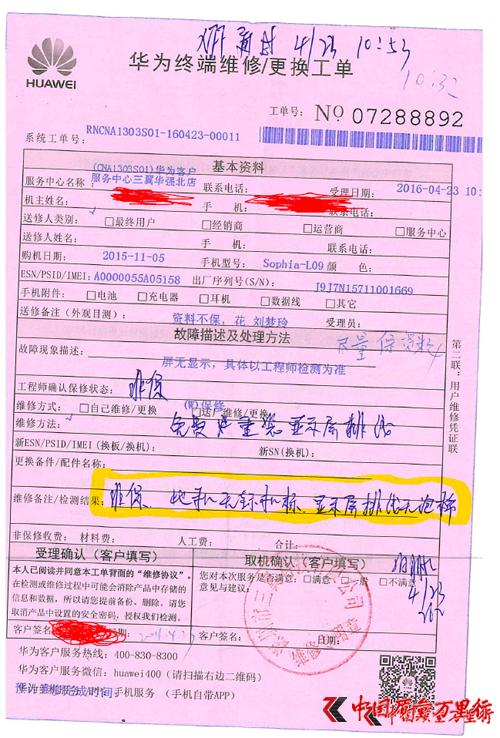 4/23 10:53
HUAWEI
华为终端维修/更换工单
10:32
工单号: No 07288892
系统工单号: RNCNA1303S01-160423-00011
基本资料
(CNA1303S01)华为客户
服务中心名称: 服务中心三翼华强北店 联系电话: 受理日期: 2016-04-23 10:
机主姓名: 手 机: 联系电话:
送修人类别: □最终用户 □经销商 □运营商 □服务中心
送修人姓名: 手 机: 联系电话:
购机日期: 2015-11-05 手机型号: Sophia-L09 颜 色:
ESN/PSID/IMEI: A0000055A05158 出厂序列号(S/N): J9J7N15711001669
手机附件: □电池 □充电器 □耳机 □数据线 □其它
送修备注(外观目测): 资料不保,花 刘梦玲 受理员:
故障描述及处理方法
故障现象描述: 屏无显示,具体以工程师检测为准
工程师确认保修状态: 非保
(W)保修
维修方式: □自己维修/更换 □送厂维修/更换
维修方法: 显示屏排线
新ESN/PSID/IMEI(换板/换机): 新SN(换机):
更换备件/配件名称:
维修备注/检测结果: 非保、此机 显示屏排线
非保修收费: 材料费: 人工费: 合计:
受理确认(客户填写)
本人已阅读并同意本工单背面的“维修协议”。
在检测或维修过程中可能会消除产品中存储的
信息和数据,所以请您提前备份、删除。请您
取消产品中设置的安全密码,授权我们检测。
客户签名: 日期:
取机确认(客户填写)
您对本次服务是否满意: □满意 □一般 □不满意
意见与建议:
4/23
客户签名:
华为客户服务热线: 400-830-8300
华为客户服务微信: huawei400(请扫描右边二维码)
手机服务(手机自带APP)
第二联:用户维修凭证联
中国质量万里行